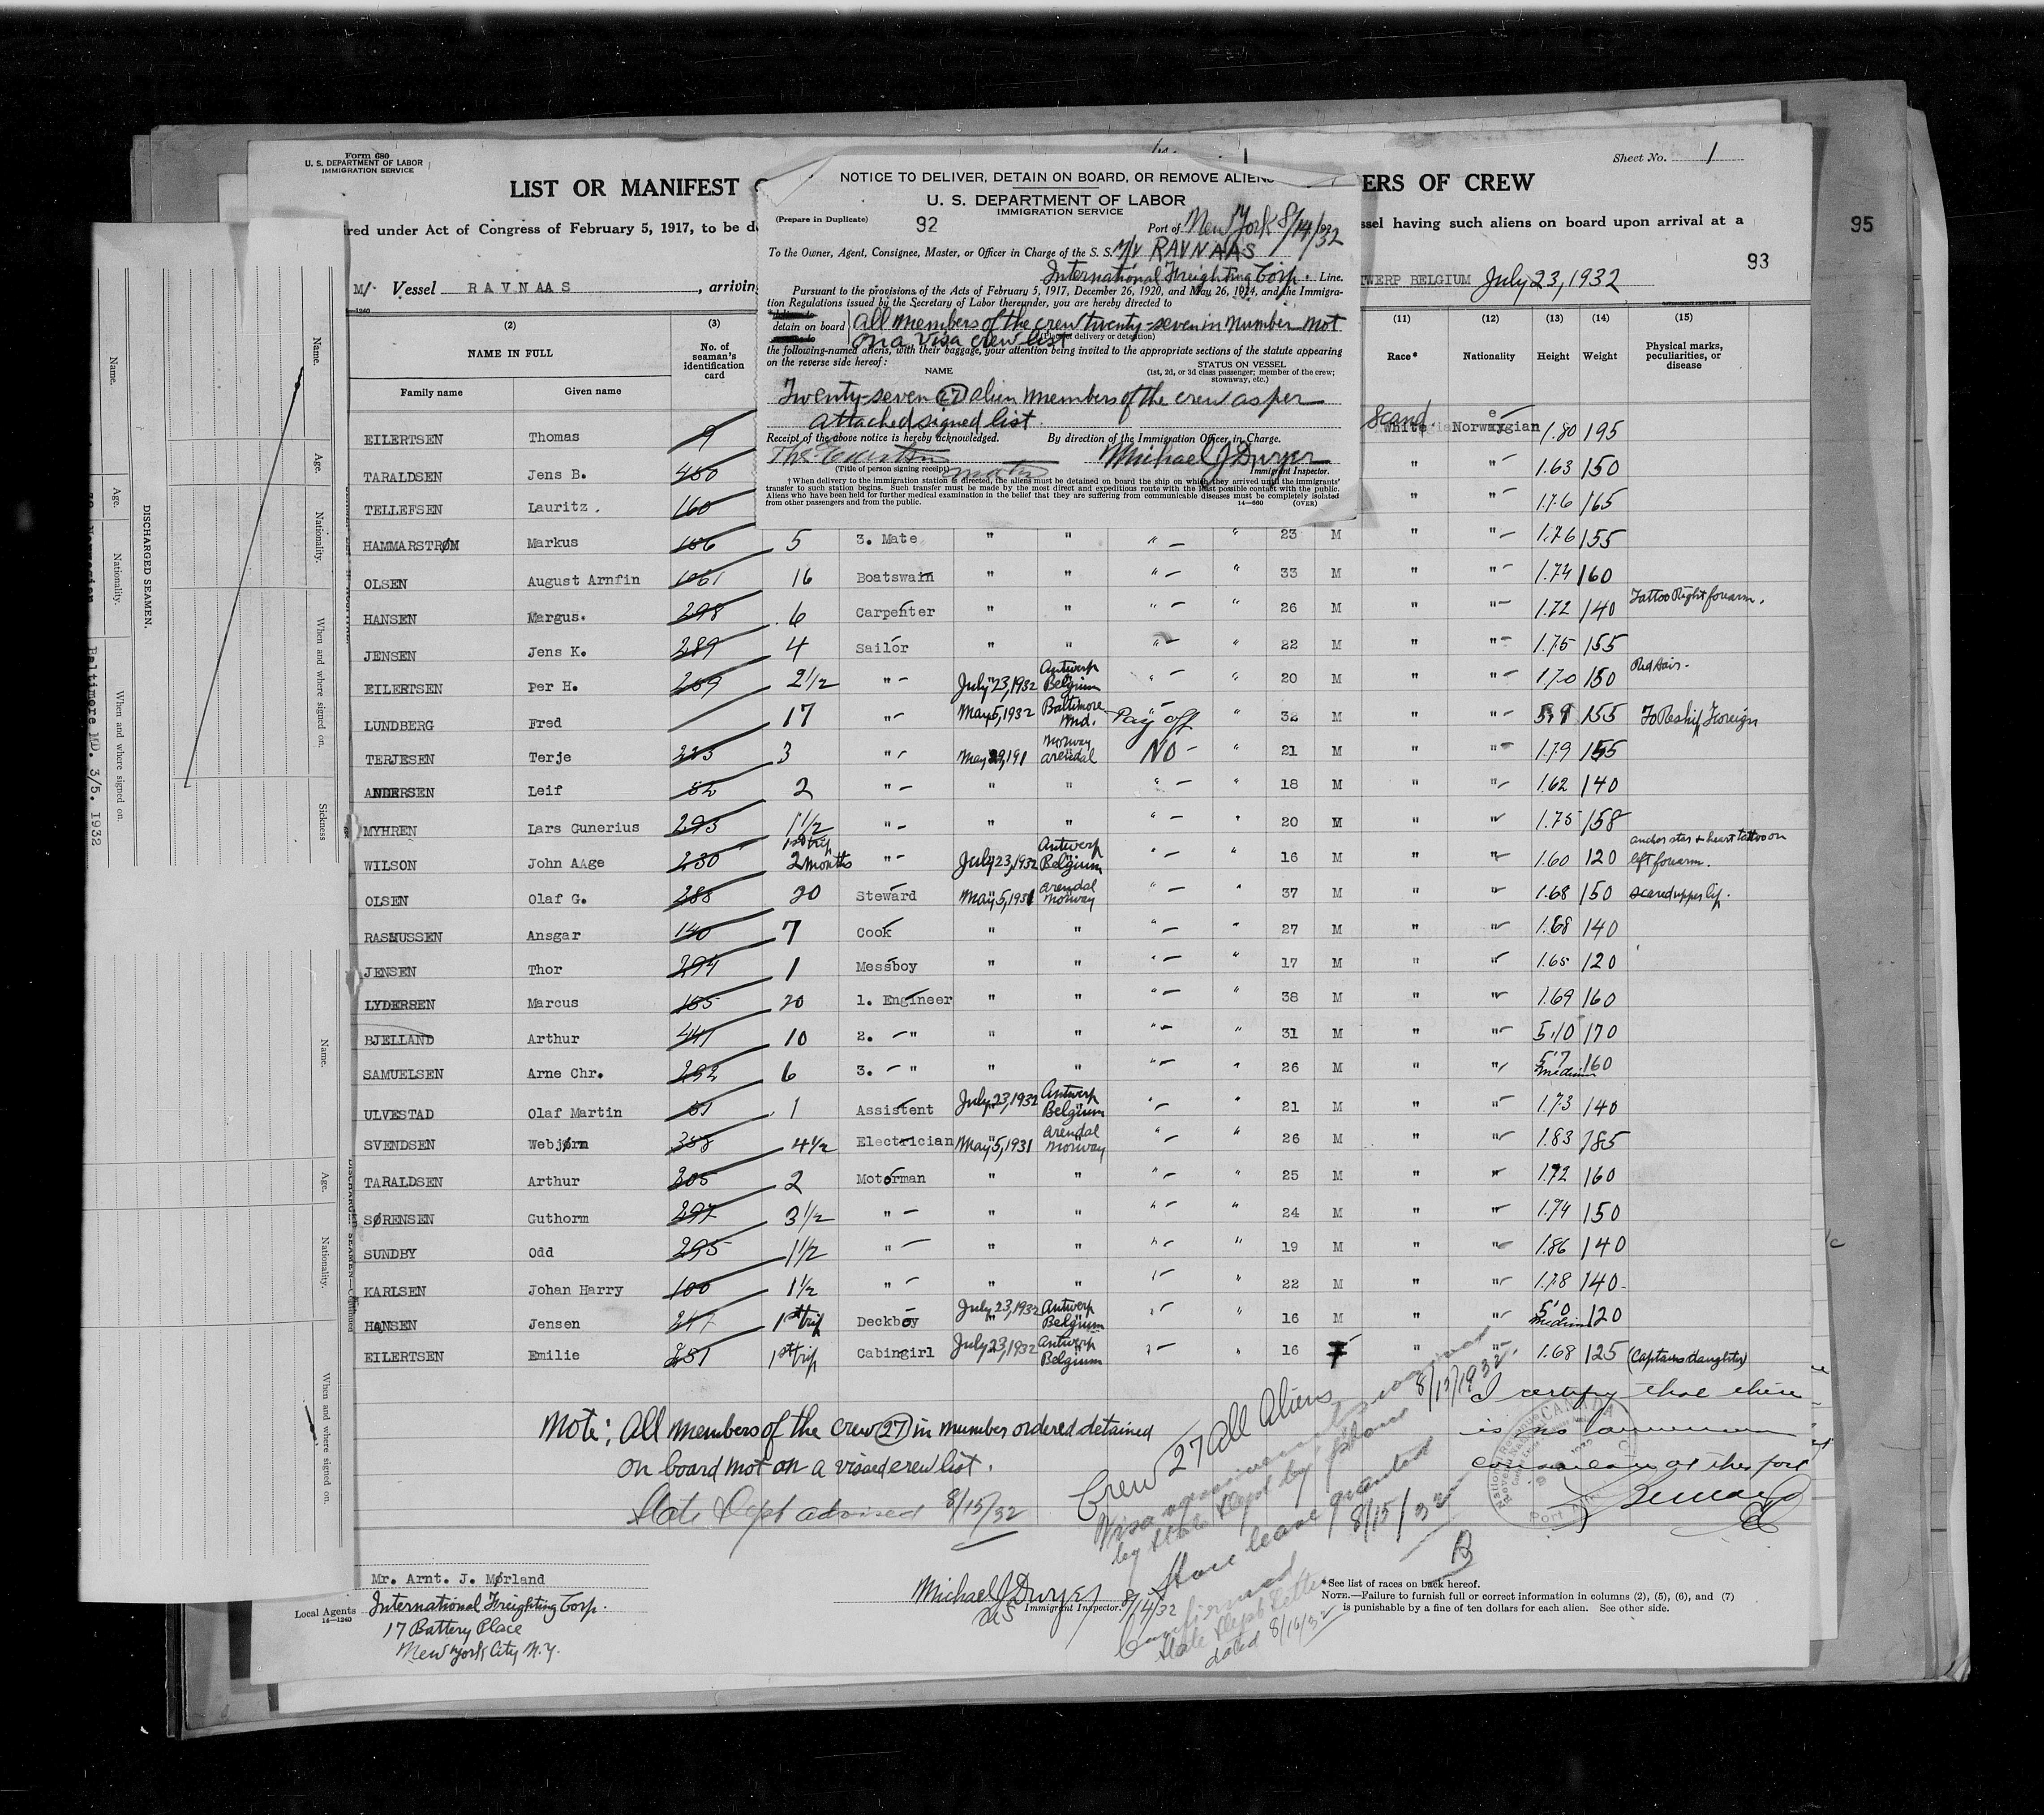 Form 680
U. S. DEPARTMENT OF LABOR
IMMIGRATION SERVICE
Sheet No. 1
LIST OR MANIFEST
ERS OF CREW
red under Act of Congress of February 5, 1917, to be d
ssel having such aliens on board upon arrival at a
95
93
M/- Vessel RAVNAAS, arrivin
WERP BELGIUM July 23, 1932
NOTICE TO DELIVER, DETAIN ON BOARD, OR REMOVE ALIENS
U. S. DEPARTMENT OF LABOR
IMMIGRATION SERVICE
(Prepare in Duplicate)
92
Port of New York 8/14/32
To the Owner, Agent, Consignee, Master, or Officer in Charge of the S. S. M/V RAVNAAS
International Freighting Corp. Line.
Pursuant to the provisions of the Acts of February 5, 1917, December 26, 1920, and May 26, 1924, and the Immigra-
tion Regulations issued by the Secretary of Labor thereunder, you are hereby directed to
detain on board All members of the crew twenty-seven in number not
on a visa crew list
the following-named aliens, with their baggage, your attention being invited to the appropriate sections of the statute appearing
on the reverse side hereof:
NAME
STATUS ON VESSEL
(1st, 2d, or 3d class passenger; member of the crew;
stowaway, etc.)
Twenty-seven (27) alien members of the crew as per
attached signed list.
Receipt of the above notice is hereby acknowledged. By direction of the Immigration Officer in Charge.
Michael J Dwyer
(Title of person signing receipt) Immigrant Inspector.
† When delivery to the immigration station is directed, the aliens must be detained on board the ship on which they arrived until the immigrants'
transfer to such station begins. Such transfer must be made by the most direct and expeditious route with the least possible contact with the public.
Aliens who have been held for further medical examination in the belief that they are suffering from communicable diseases must be completely isolated
from other passengers and from the public. 14—660 (OVER)
(2) (3) (11) (12) (13) (14) (15)
NAME IN FULL
No. of seaman's identification card
Race* Nationality Height Weight Physical marks, peculiarities, or disease
Family name Given name
EILERTSEN Thomas 9 Scand White Norwegian 1.80 195
TARALDSEN Jens B. 450 " " 1.63 150
TELLEFSEN Lauritz. 160 " " 1.76 165
HAMMARSTRØM Markus 186 5 3. Mate " " " " 23 M " " 1.76 155
OLSEN August Arnfin 1061 16 Boatswain " " " " 33 M " " 1.74 160
HANSEN Margus. 298 6 Carpenter " " " " 26 M " " 1.72 140 Tattoo Right forearm.
JENSEN Jens K. 289 4 Sailor " " " " 22 M " " 1.75 155
EILERTSEN per H. 269 2 1/2 " July 23, 1932 Antwerp Belgium " " 20 M " " 1.70 150 Red Hair.
LUNDBERG Fred 17 " May 5, 1932 Baltimore Md. Pay off " 32 M " " 5,9 155 To Reship Foreign
TERJESEN Terje 223 3 " Norway Arendal NO " 21 M " " 1.79 155
ANDERSEN Leif 82 2 " " " " " 18 M " " 1.62 140
MYHREN Lars Gunerius 293 1 1/2 " " " " " 20 M " " 1.75 158
WILSON John AAge 230 1st trip 2 months " July 23, 1932 Antwerp Belgium " " 16 M " " 1.60 120 anchor star & heart tattoo on left forearm.
OLSEN Olaf G. 288 20 Steward May 5, 1931 Arendal Norway " " 37 M " " 1.68 150 scared upper lip.
RASMUSSEN Ansgar 140 7 Cook " " " " 27 M " " 1.68 140
JENSEN Thor 294 1 Messboy " " " " 17 M " " 1.65 120
LYDERSEN Marcus 185 20 1. Engineer " " " " 38 M " " 1.69 160
BJELLAND Arthur 441 10 2. " " " " " 31 M " " 5,10 170
SAMUELSEN Arne Chr. 292 6 3. " " " " " 26 M " " 5'7 medium 160
ULVESTAD Olaf Martin 61 1 Assistent July 23, 1932 Antwerp Belgium " " 21 M " " 1.73 140
SVENDSEN Webjørn 388 4 1/2 Electrician May 5, 1931 Arendal Norway " " 26 M " " 1.83 185
TARALDSEN Arthur 305 2 Motorman " " " " 25 M " " 1.72 160
SØRENSEN Guthorm 297 3 1/2 " " " " " 24 M " " 1.74 150
SUNDBY Odd 295 1 1/2 " " " " " 19 M " " 1.86 140
KARLSEN Johan Harry 100 1 1/2 " " " " " 22 M " " 1.78 140
HANSEN Jensen 247 1st trip Deckboy July 23, 1932 Antwerp Belgium " " 16 M " " 5'0 medium 120
EILERTSEN Emilie 251 1st trip Cabingirl July 23, 1932 Antwerp Belgium " " 16 F " " 1.68 125 (Captains daughter)
Note: All members of the crew (27) in number ordered detained
on board not on a visaed crew list.
State Dept advised 8/15/32
Crew 27 all aliens
by State Dept by phone 8/15/1932
Shore leave granted
8/15/32
B
Confirmed
State Dept letter
dated 8/16/32
I certify that there
is no American
at this port
CANADA
Mr. Arnt. J. Mørland
Local Agents International Freighting Corp.
14—1240
17 Battery Place
New York City N.Y.
Michael J Dwyer 8/14/32
US Immigrant Inspector.
*See list of races on back hereof.
NOTE.—Failure to furnish full or correct information in columns (2), (5), (6), and (7)
is punishable by a fine of ten dollars for each alien. See other side.
DISCHARGED SEAMEN.
Name. Age. Nationality. When and where signed on. Sickness
Baltimore MD. 3/5. 1932
Name. Age. Nationality. When and where signed on.
DISCHARGED SEAMEN—Continued